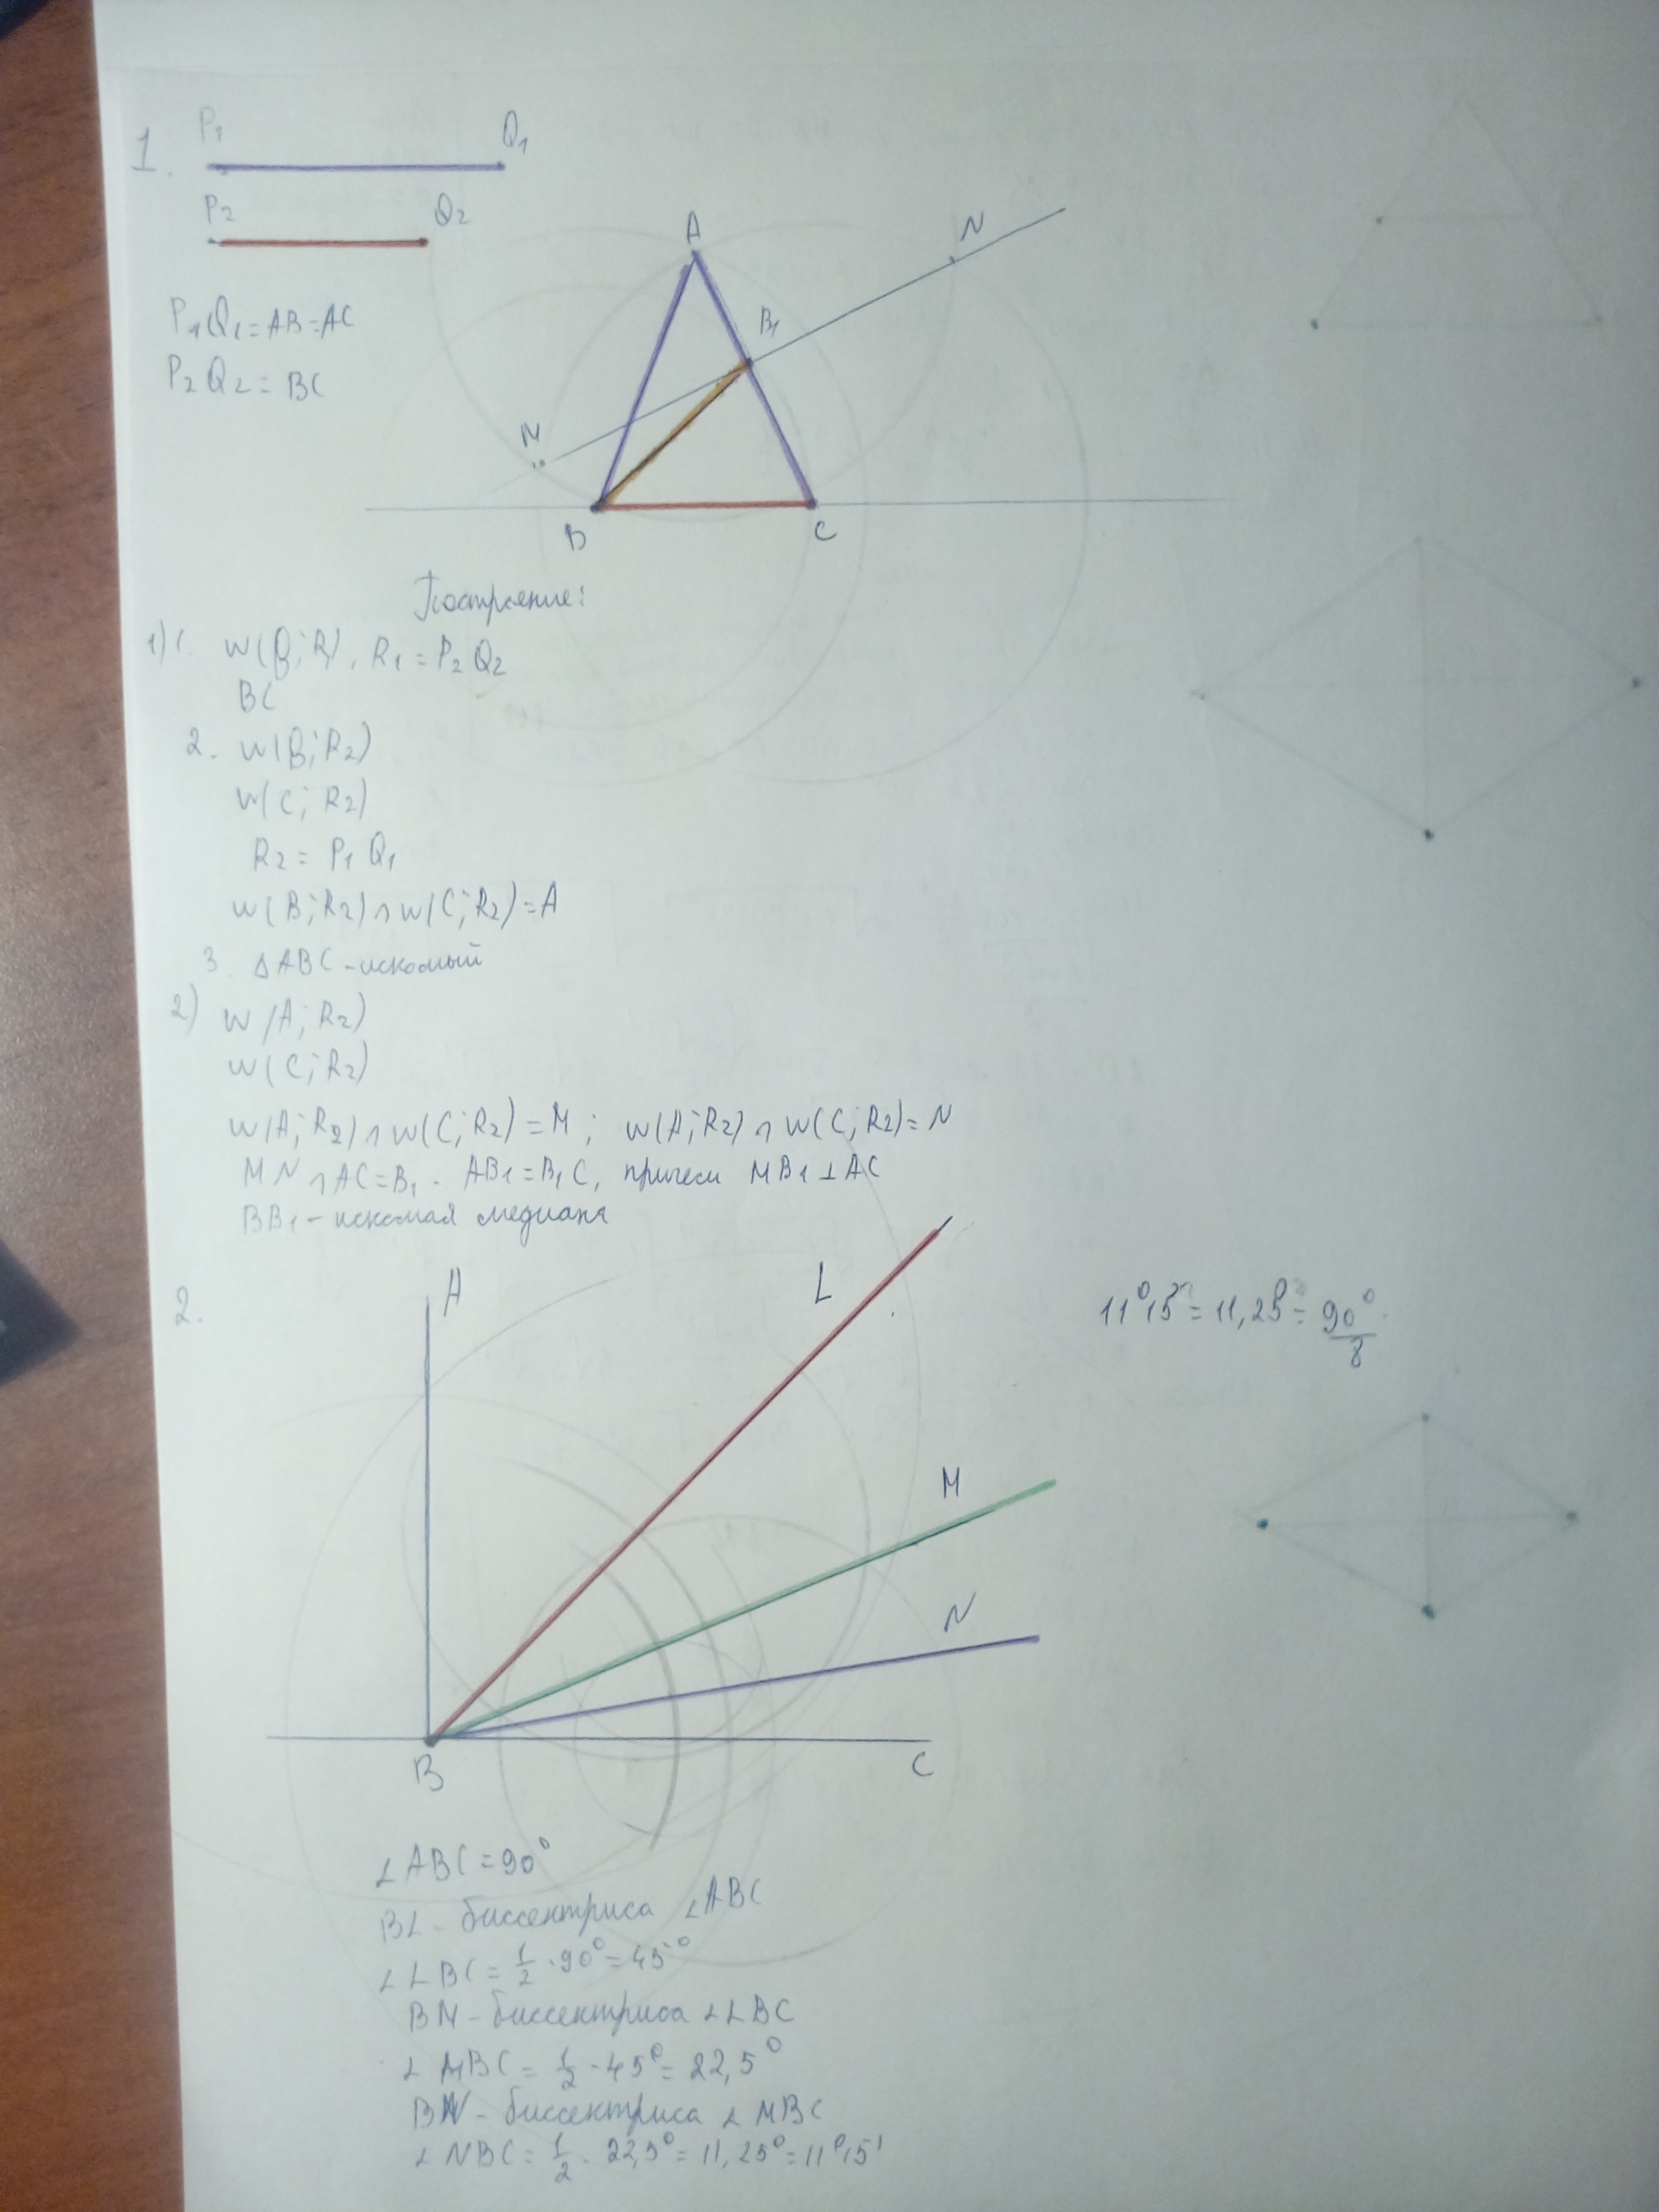 1.
P₁ Q₁
P₂ Q₂
P₁Q₁ = AB = AC
P₂Q₂ = BC
A
N
B₁
M
B
C
Построение:
1) 1. w(B; R₁), R₁ = P₂Q₂
BC
2. w(B; R₂)
w(C; R₂)
R₂ = P₁Q₁
w(B; R₂) ∩ w(C; R₂) = A
3. △ABC - искомый
2) w(A; R₂)
w(C; R₂)
w(A; R₂) ∩ w(C; R₂) = M; w(A; R₂) ∩ w(C; R₂) = N
MN ∩ AC = B₁. AB₁ = B₁C, причем MB₁ ⊥ AC
BB₁ - искомая медиана
2.
A
L
11°15' = 11,25° = 90°/8
M
N
B
C
∠ABC = 90°
BL - биссектриса ∠ABC
∠LBC = 1/2 · 90° = 45°
BM - биссектриса ∠LBC
∠MBC = 1/2 · 45° = 22,5°
BN - биссектриса ∠MBC
∠NBC = 1/2 · 22,5° = 11,25° = 11°15'